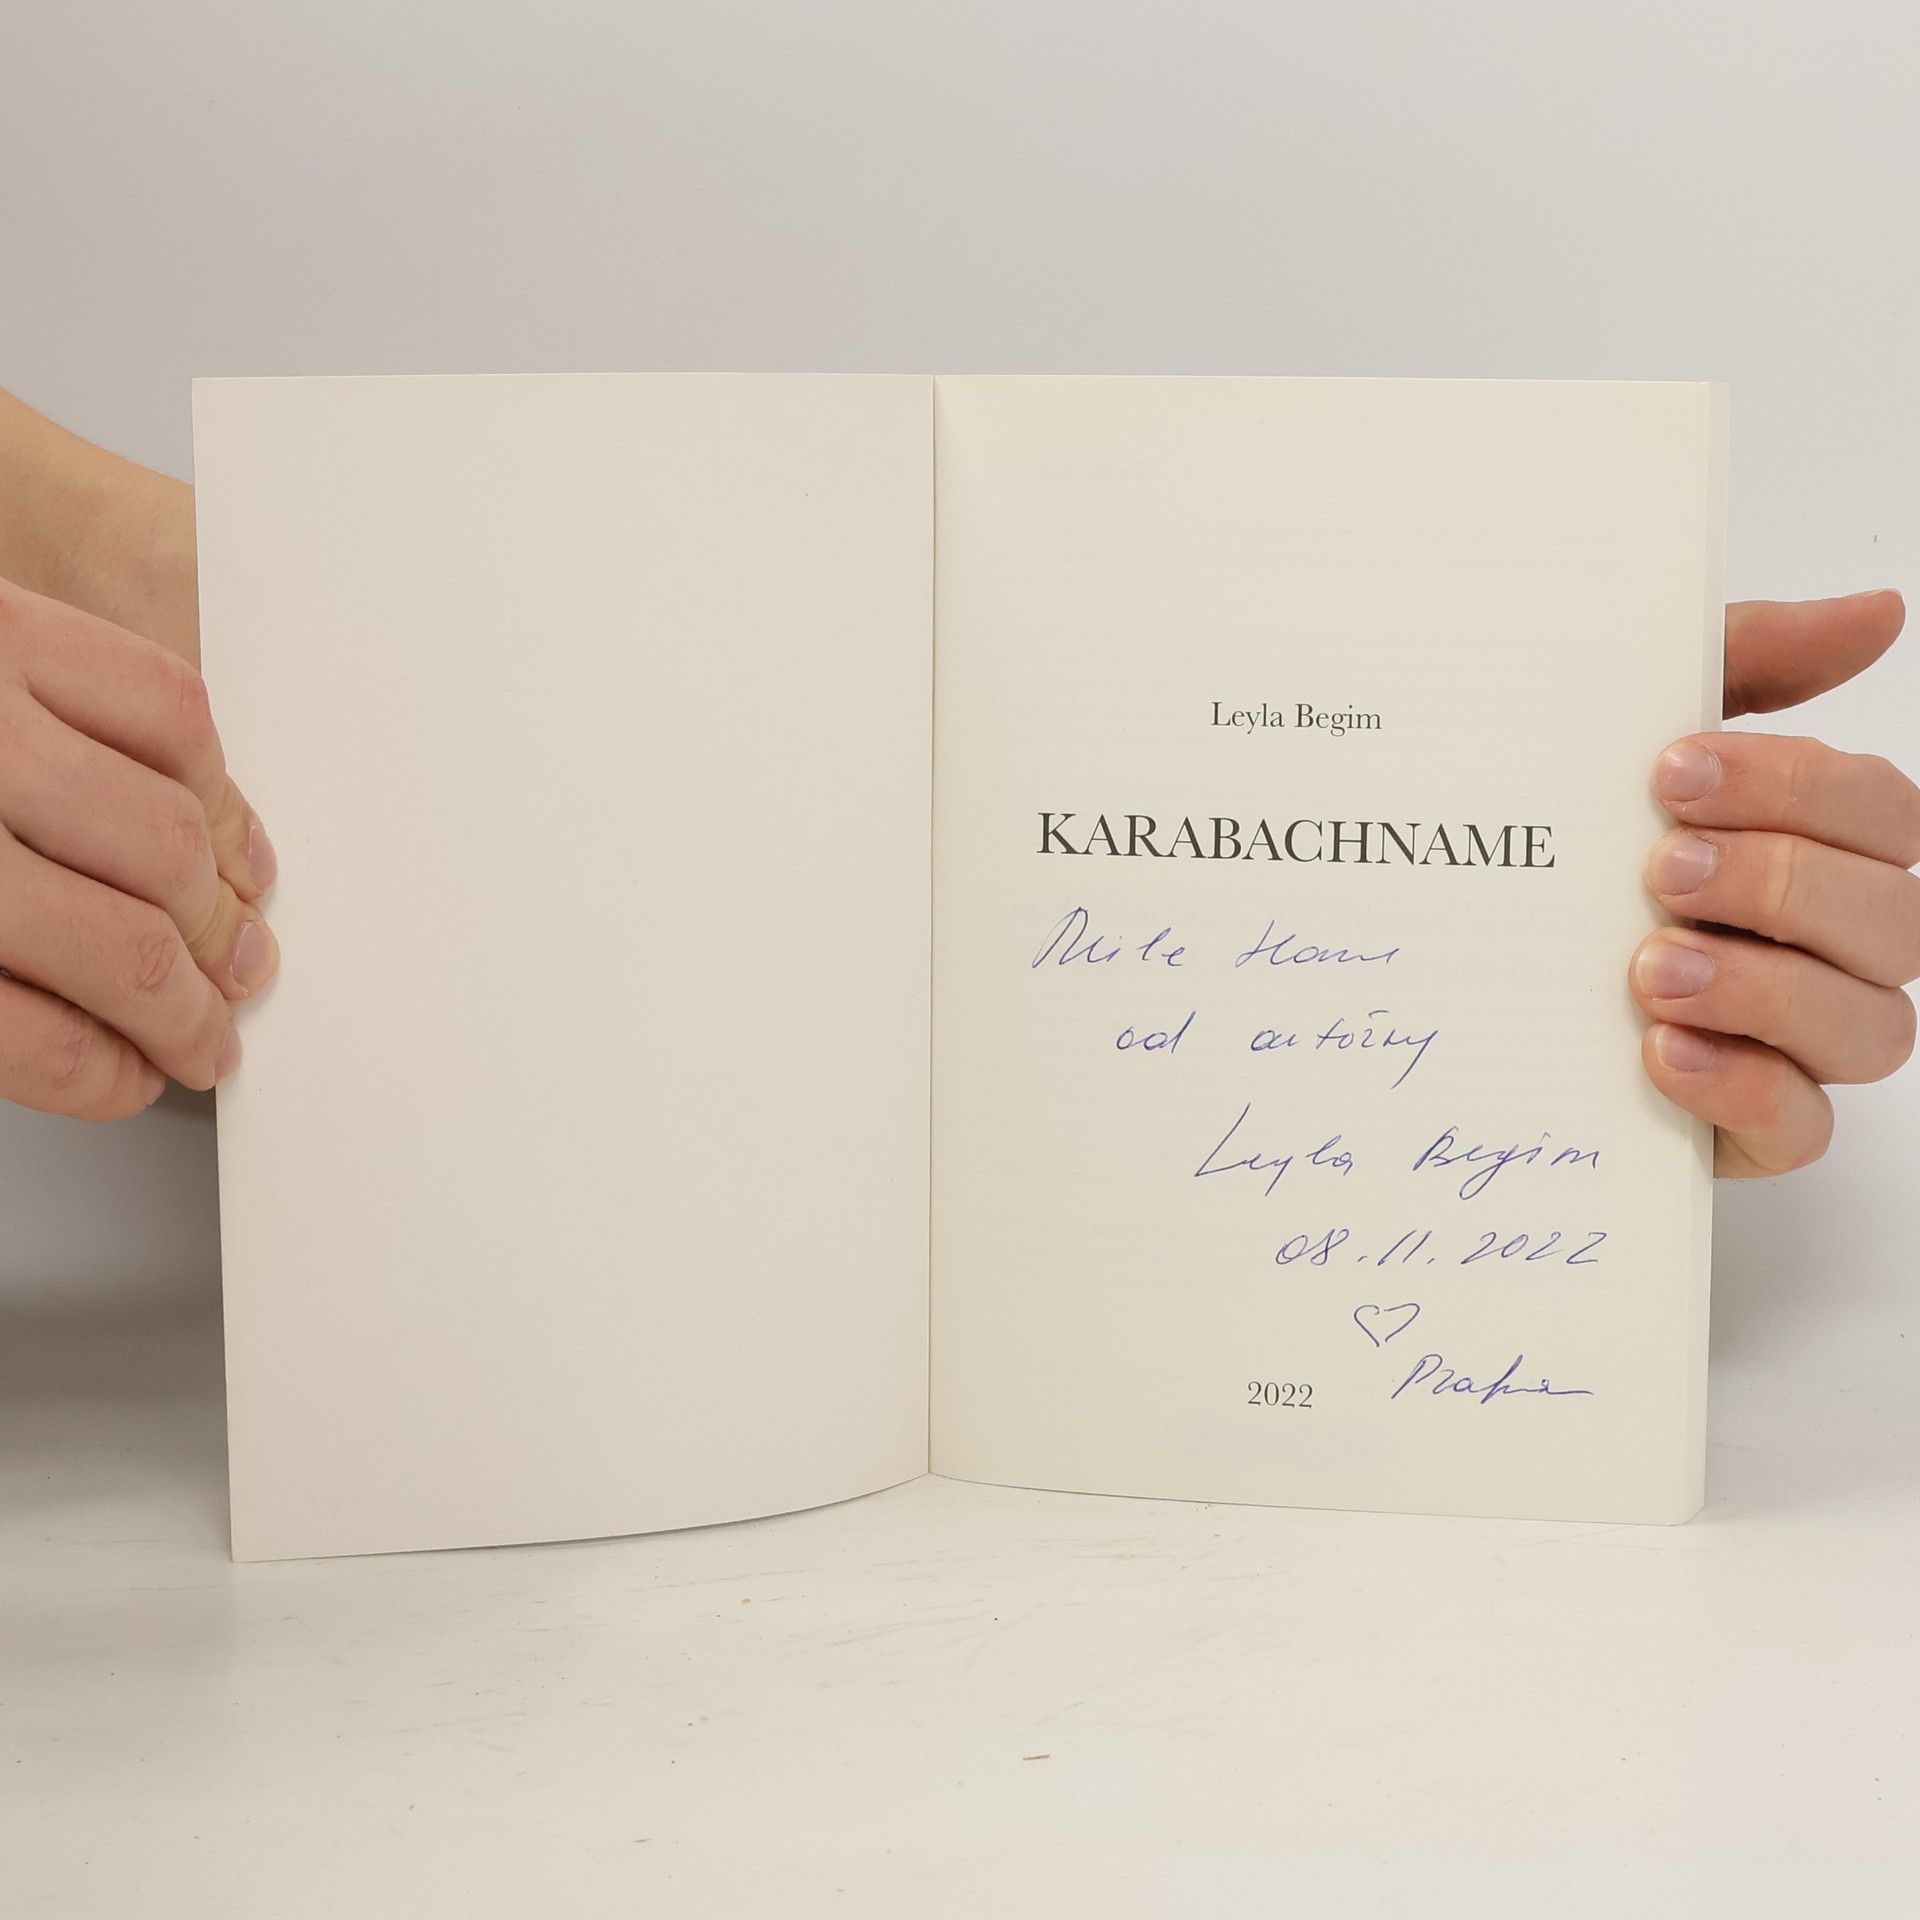 Leyla Begim
KARABACHNAME
Mile Hane
od autorky
Leyla Begim
08.11.2022
♡
2022 Praha